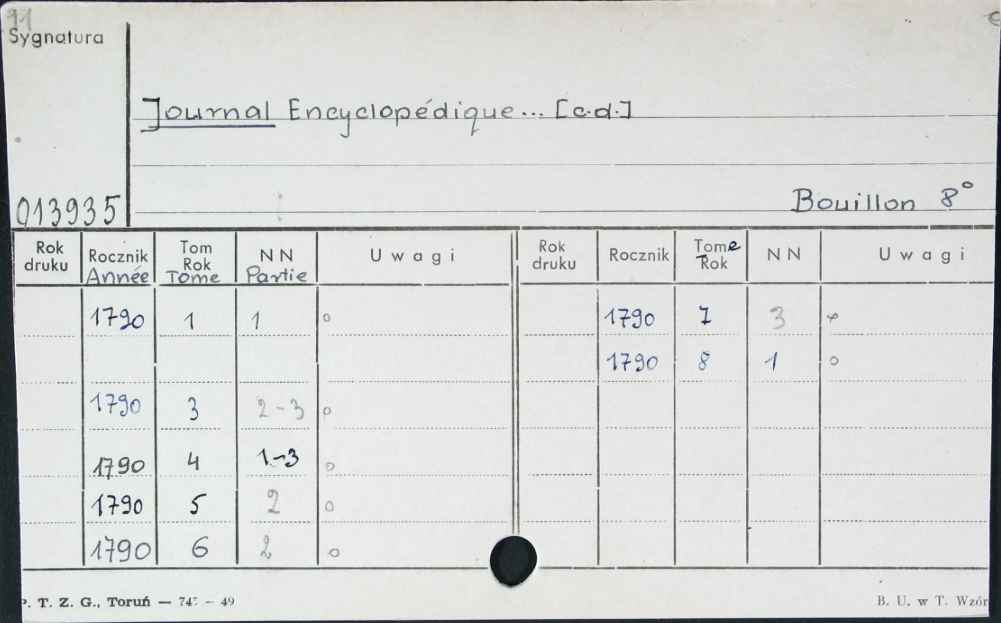 11
Sygnatura
Journal Encyclopédique... [c.d.]
013935
Bouillon 8°
Rok druku Rocznik Année Tom Rok Tome NN Partie Uwagi Rok druku Rocznik Tome Rok NN Uwagi
1790 1 1 o 1790 7 3
1790 8 1 o
1790 3 2-3 o
1790 4 1-3 o
1790 5 2 o
1790 6 2 o
P. T. Z. G., Toruń — 49
B. U. w T. Wzór